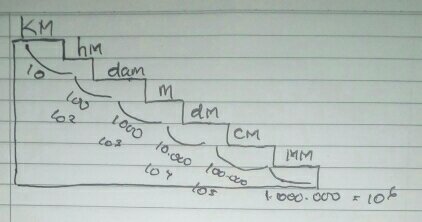 KM
hM
dam
m
dM
CM
MM
10
100
102
1000
103
10.000
104
100.000
105
1.000.000 = 10⁶